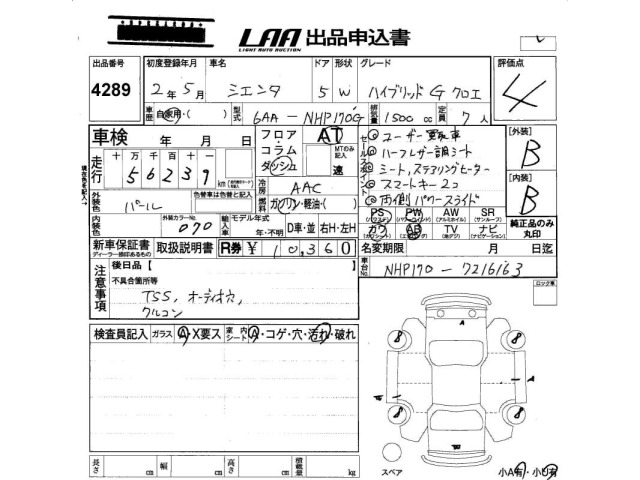 LAA 出品申込書
LIGHT AUTO AUCTION
出品番号 初度登録年月 車名 ドア 形状 グレード 評価点
4289 2年5月 シエンタ 5 W ハイブリッド G クロエ 4
車歴 自家用・( ) 型式 6AA-NHP170G 排気量 1500 cc 定員 7人
車検 年 月 日 フロア・コラム ダッシュ AT MTのみ記入 速
セールスポイント
ユーザー買取車
ハーフレザー調シート
シート、ステアリングヒーター
スマートキー2コ
両側パワースライド
[外装] B
[内装] B
走行 十万千百十 56239 km
現在色を記入
冷房 AAC
燃料 ガソリン・軽油・( )
外装色 パール 色替車は色替と記入
外装カラーNo. 070 内装色
輸入車 モデル年式 年・不明 D車・並 右H・左H
PS PW AW SR
(パワステ) (パワーウィンド) (アルミホイル) (サンルーフ)
カワ AB TV ナビ
(カワシート) (エアバッグ) (地デジ) (ナビゲーション)
純正品のみ丸印
新車保証書 取扱説明書 R券 ¥10,360
ディーラー捺印あるもの
名変期限 月 日迄
車台No. NHP170-7216163
注意事項 後日品 [ ]
不具合箇所等
TSS、オーディオ穴、
クルコン
ロック車
検査員記入 ガラス A・X要ス 室内シート A・コゲ・穴・汚れ・破れ
A
8 8
A A
8 8
スペア
長さ cm 幅 cm 高さ cm 積載量 kg
小A有・小U有